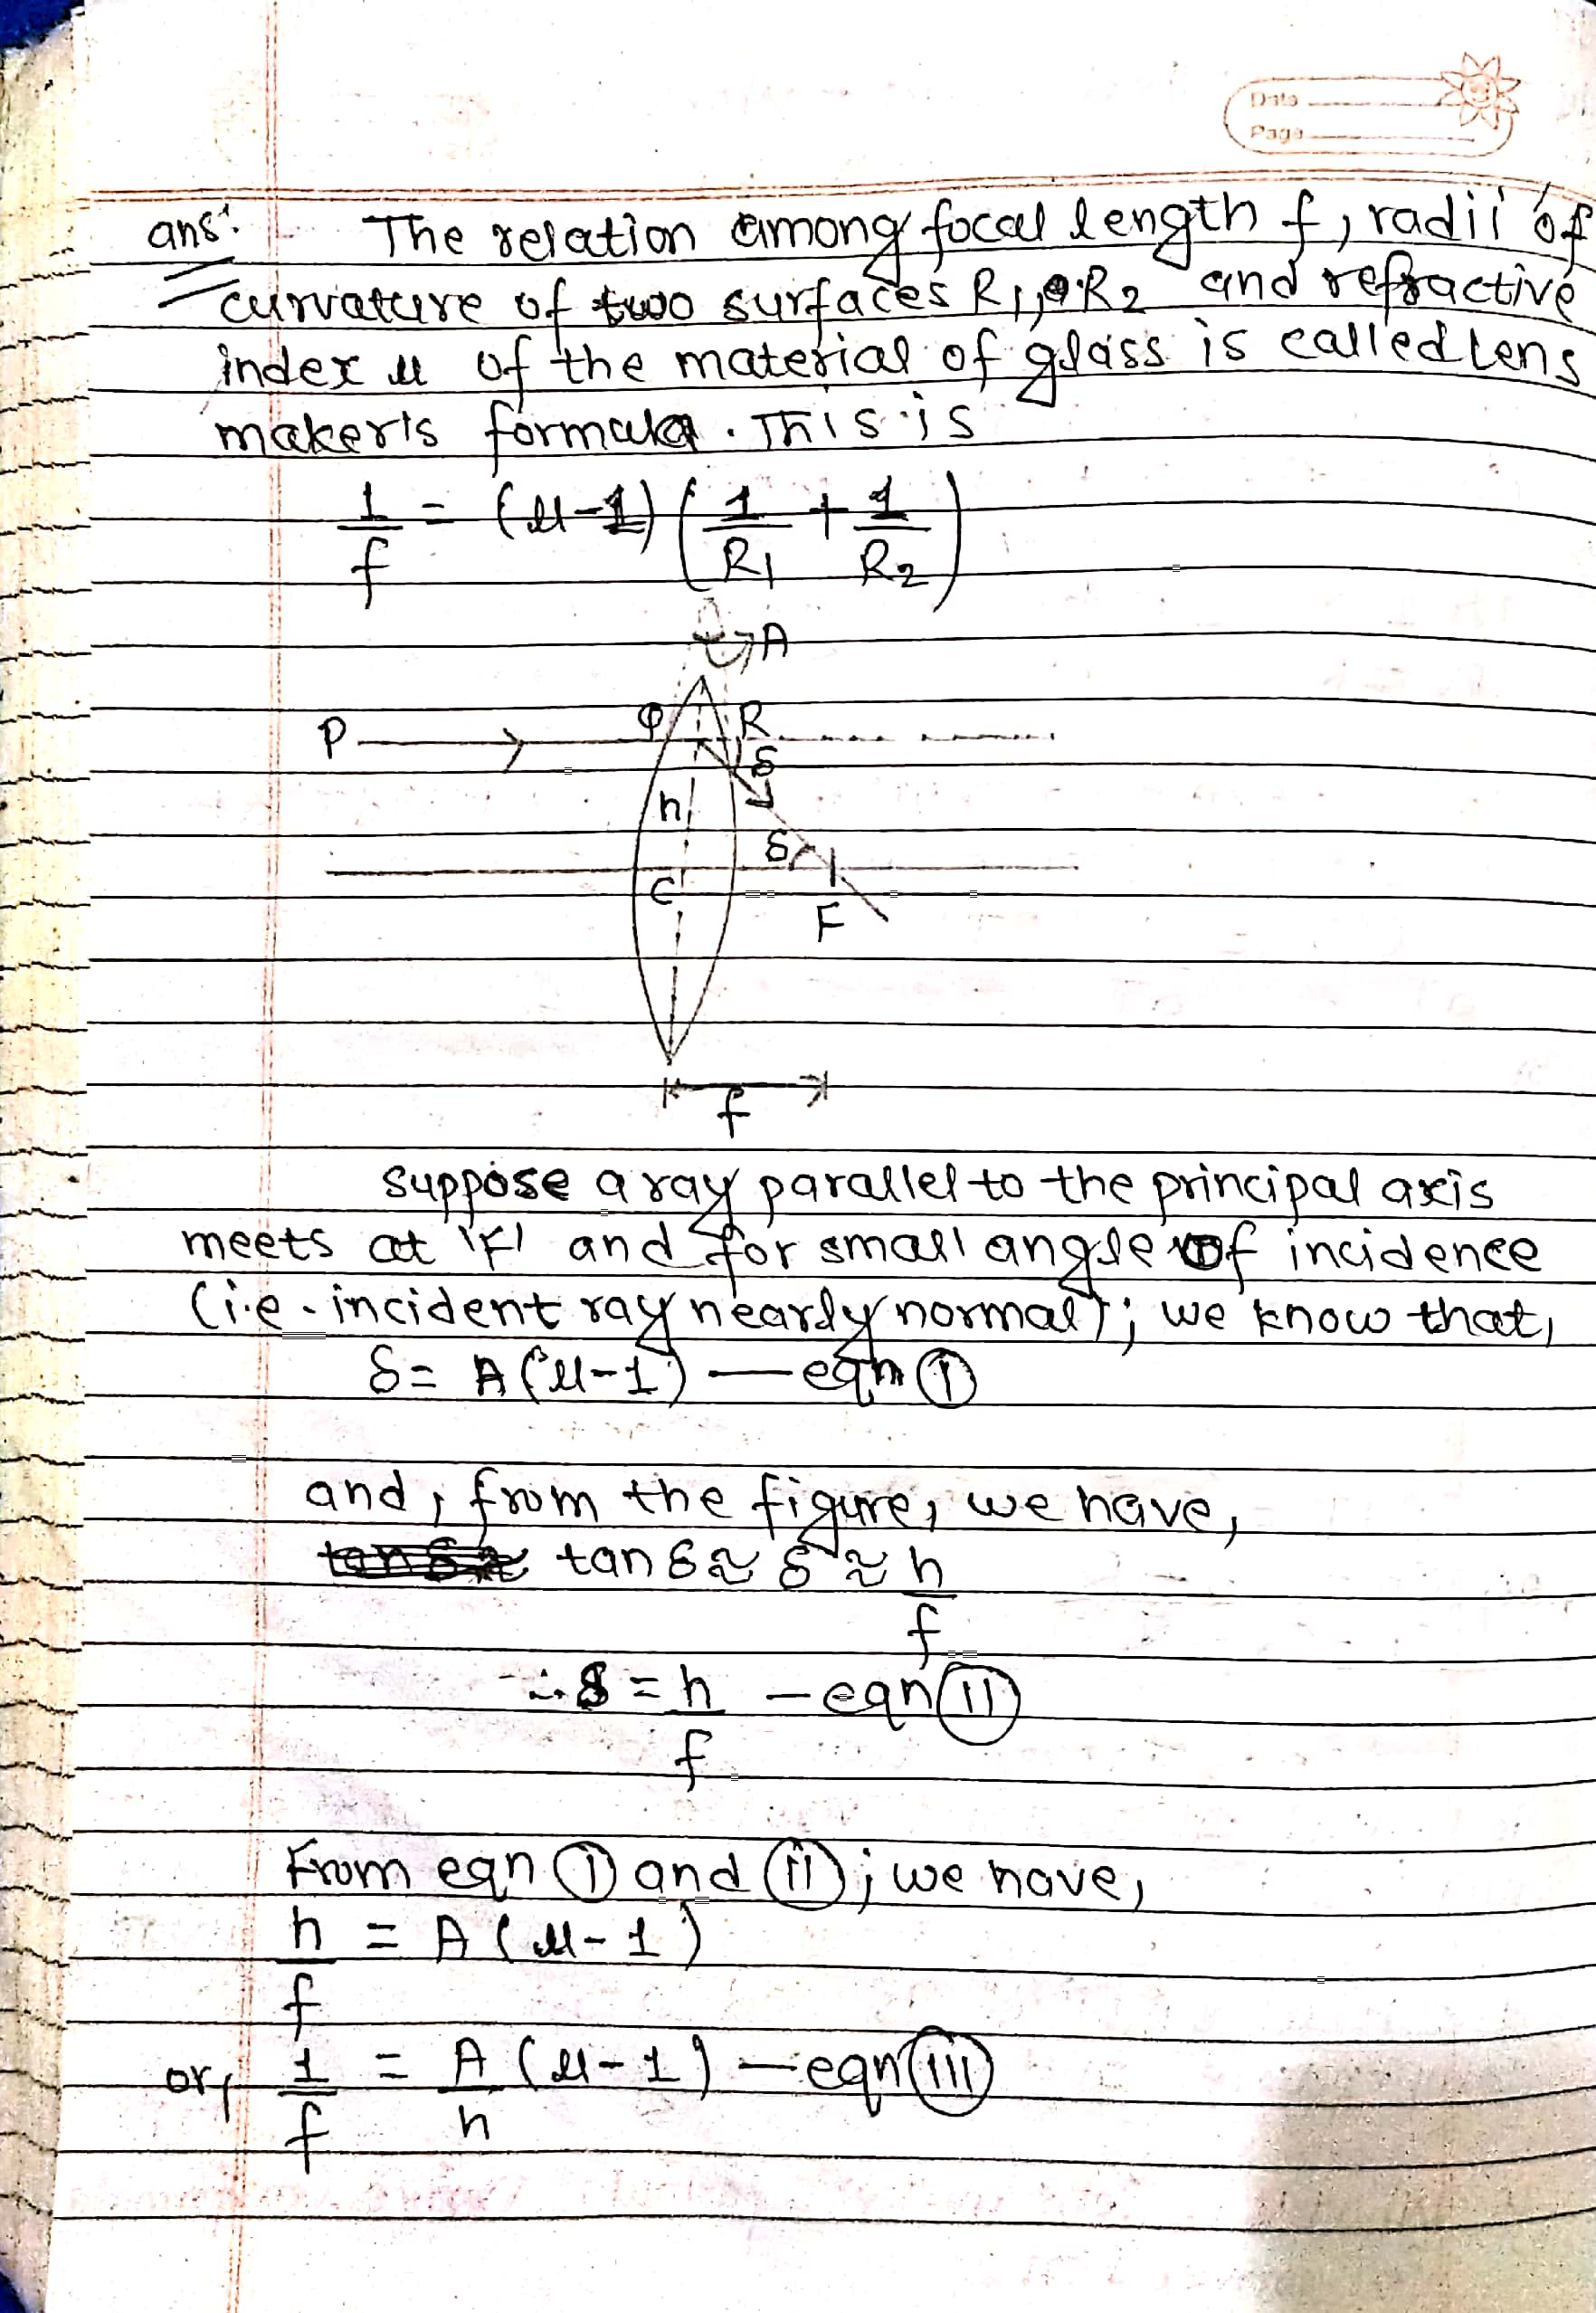 Date
Page
ans:- The relation among focal length f, radii of
curvature of two surfaces R1, R2 and refractive
index μ of the material of glass is called Lens
maker's formula. This is
1/f = (μ-1) (1/R1 + 1/R2)
A
P Q R
δ
h
δ
C
F
f
suppose a ray parallel to the principal axis
meets at 'F' and for small angle of incidence
(i.e. incident ray nearly normal); we know that,
δ = A(μ-1) — eqn (i)
and, from the figure, we have,
tan δ ≈ δ ≈ h/f
∴ δ = h/f - eqn (ii)
From eqn (i) and (ii); we have,
h/f = A(μ-1)
or, 1/f = A/h (μ-1) — eqn (iii)